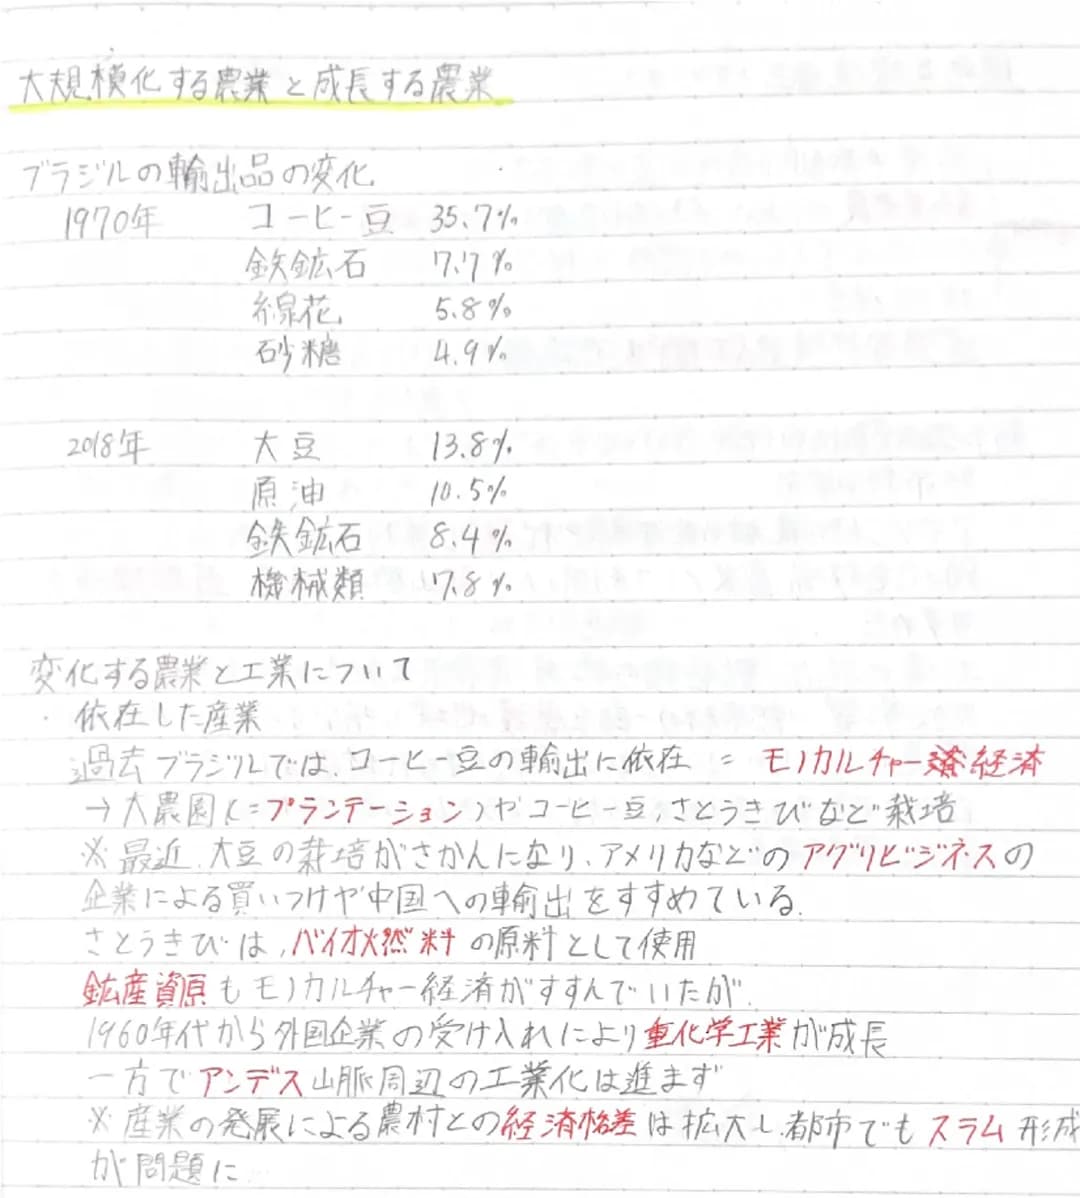 大規模化する農業と成長する農業
ブラジルの輸出品の変化
1970年 コーヒー豆 35.7%
鉄鉱石 7.7%
綿花 5.8%
砂糖 4.9%
2018年 大豆 13.8%
原油 10.5%
鉄鉱石 8.4%
機械類 7.8%
変化する農業と工業について
・依在した産業
過去ブラジルでは、コーヒー豆の輸出に依在 = モノカルチャー経済
→大農園(=プランテーション)やコーヒー豆さとうきびなど栽培
※最近、大豆の栽培がさかんになり、アメリカなどのアグリビジネスの
企業による買いつけや中国への輸出をすすめている。
さとうきびは、バイオ燃料の原料として使用
鉱産資原もモノカルチャー経済がすすんでいたが、
1960年代から外国企業の受け入れにより重化学工業が成長
一方でアンデス山脈周辺の工業化は進まず
※産業の発展による農村との経済格差は拡大し都市でもスラム形成
が問題に